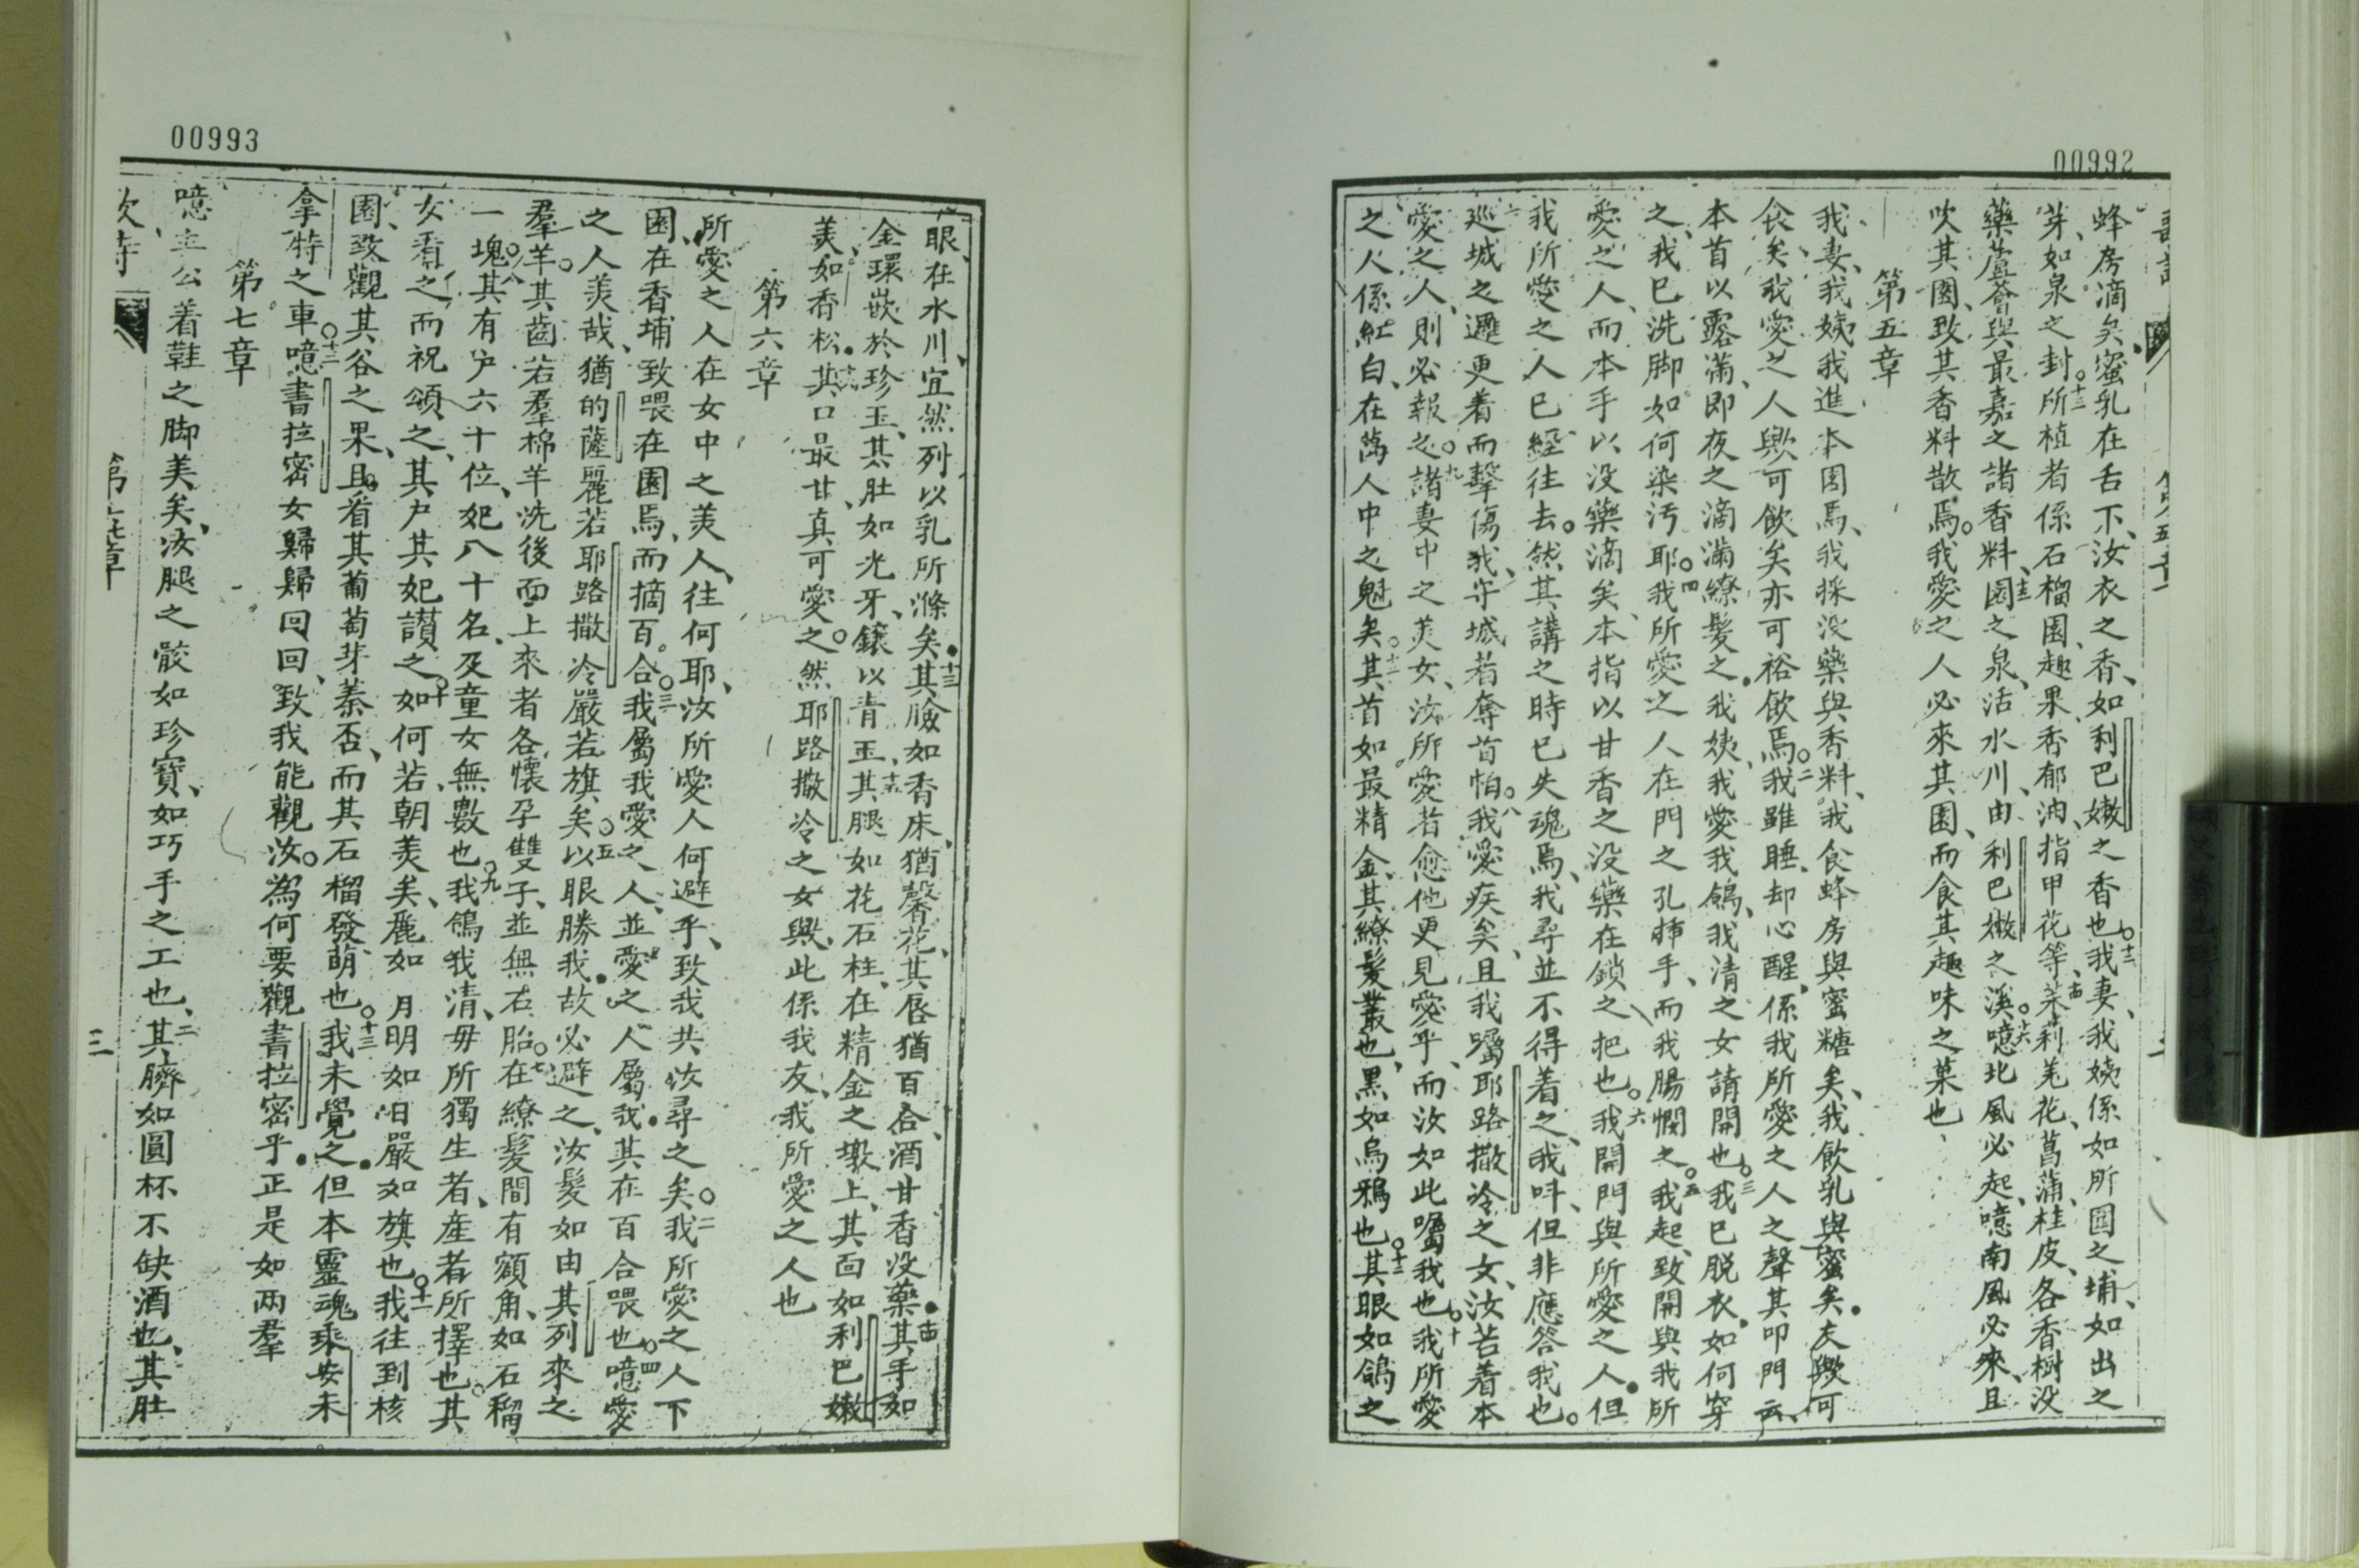 00992
蜂房滴矣蜜乳在舌下、汝衣之香、如利巴嫩之香也。十二我妻、我姨係如所囿之埔、如出之
芽、如泉之封。十三所植者係石榴園、趣果、香郁油、指甲花等、十四茉莉羗花、菖蒲、桂皮、各香樹没
藥蘆薈與最嘉之諸香料、十五園之泉、活水川、由利巴嫩之溪。十六噫北風必起、噫南風必來、且
吹其園、致其香料散焉。我愛之人必來其園、而食其趣味之菓也、
第五章
我妻、我姨、我進本園焉、我採没藥與香料、我食蜂房與蜜糖矣、我飲乳與蜜矣。友歟可
食矣、我愛之人歟可飲矣亦可裕飲焉。二我雖睡、却心醒、係我所愛之人之聲其叩門云、
本首以露滿、即夜之滴滿繚髮之。我姨、我愛我鴿、我清之女請開也。三我已脱衣、如何穿
之、我已洗脚如何染汚耶。四我所愛之人在門之孔揷手、而我腸憫之。五我起、致開與我所
愛之人、而本手以没藥滴矣、本指以甘香之没藥在鎖之把也。六我開門與所愛之人、但
我所愛之人已經往去。然其講之時已失魂焉、我尋並不得着之、我呌、但非應答我也。
廵城之邏更着而擊傷我、守城者奪首帕。八我愛疾矣、且我囑耶路撒冷之女、汝若着本
愛之人、則必報之。九諸妻中之美女、汝所愛者愈他更見愛乎、而汝如此囑我也。十我所愛
之人係紅白、在萬人中之魁矣。十一其首如最精金、其繚髮叢也、黑如烏鴉也。十二其眼如鴿之
00993
眼、在水川、宜然列以乳所滌矣。十三其臉如香床、猶馨花、其唇猶百合、酒甘香没藥。十四其手如
金環嵌於珍玉、其肚如光牙、鑲以青玉、十五其腿如花石柱、在精金之墩上、其面如利巴嫩
美、如香松。十六其口最甘、真可愛之。然耶路撒冷之女歟、此係我友、我所愛之人也
第六章
所愛之人在女中之美人、往何耶、汝所愛人何避乎、致我共汝尋之矣。二我所愛之人下
園、在香埔致喂在園焉、而摘百合。三我屬我愛之人、並愛之人屬我。其在百合喂也。四噫愛
之人美哉、猶的薩麗若耶路撒冷嚴若旗矣。五以眼勝我。故必避之、汝髮如由其列來之
羣羊。其齒若羣棉羊洗後而上來者各懷孕雙子、並無石胎。七在繚髮間有額角、如石榴
一塊。八其有后六十位、妃八十名、及童女無數也。九我鴿我清、毋所獨生者、産者所擇也。其
女看之而祝頌之、其户其妃讃之。十如何若朝美矣、麗如月明如日嚴如旗也。十一我往到核
園、致觀其谷之果、且看其葡萄芽蓁否、而其石榴發萌也。十三我未覺之。但本靈魂乘安未
拿特之車。十三噫書拉密女歸歸回回、致我能觀汝。為何要觀書拉密乎。正是如兩羣
第七章
噫主公着鞋之脚美矣、汝腿之骹如珍寶、如巧手之工也、二其臍如圓杯不缺酒也、其肚
三